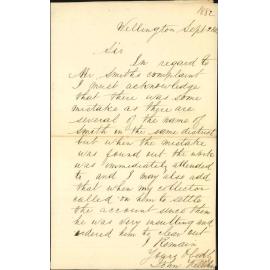 1882
Wellington Sept
Sir
In regard to
Mr Smiths complaint
I must acknowledge
that there was some
mistake as there are
several of the name of
Smith in the same district
but when the mistake
was found out the work
was immediately attended
to and I may also add
that when my collector
called on him to settle
the account since then
he was very insulting and
ordered him to clear out
I Remain
Yours
John